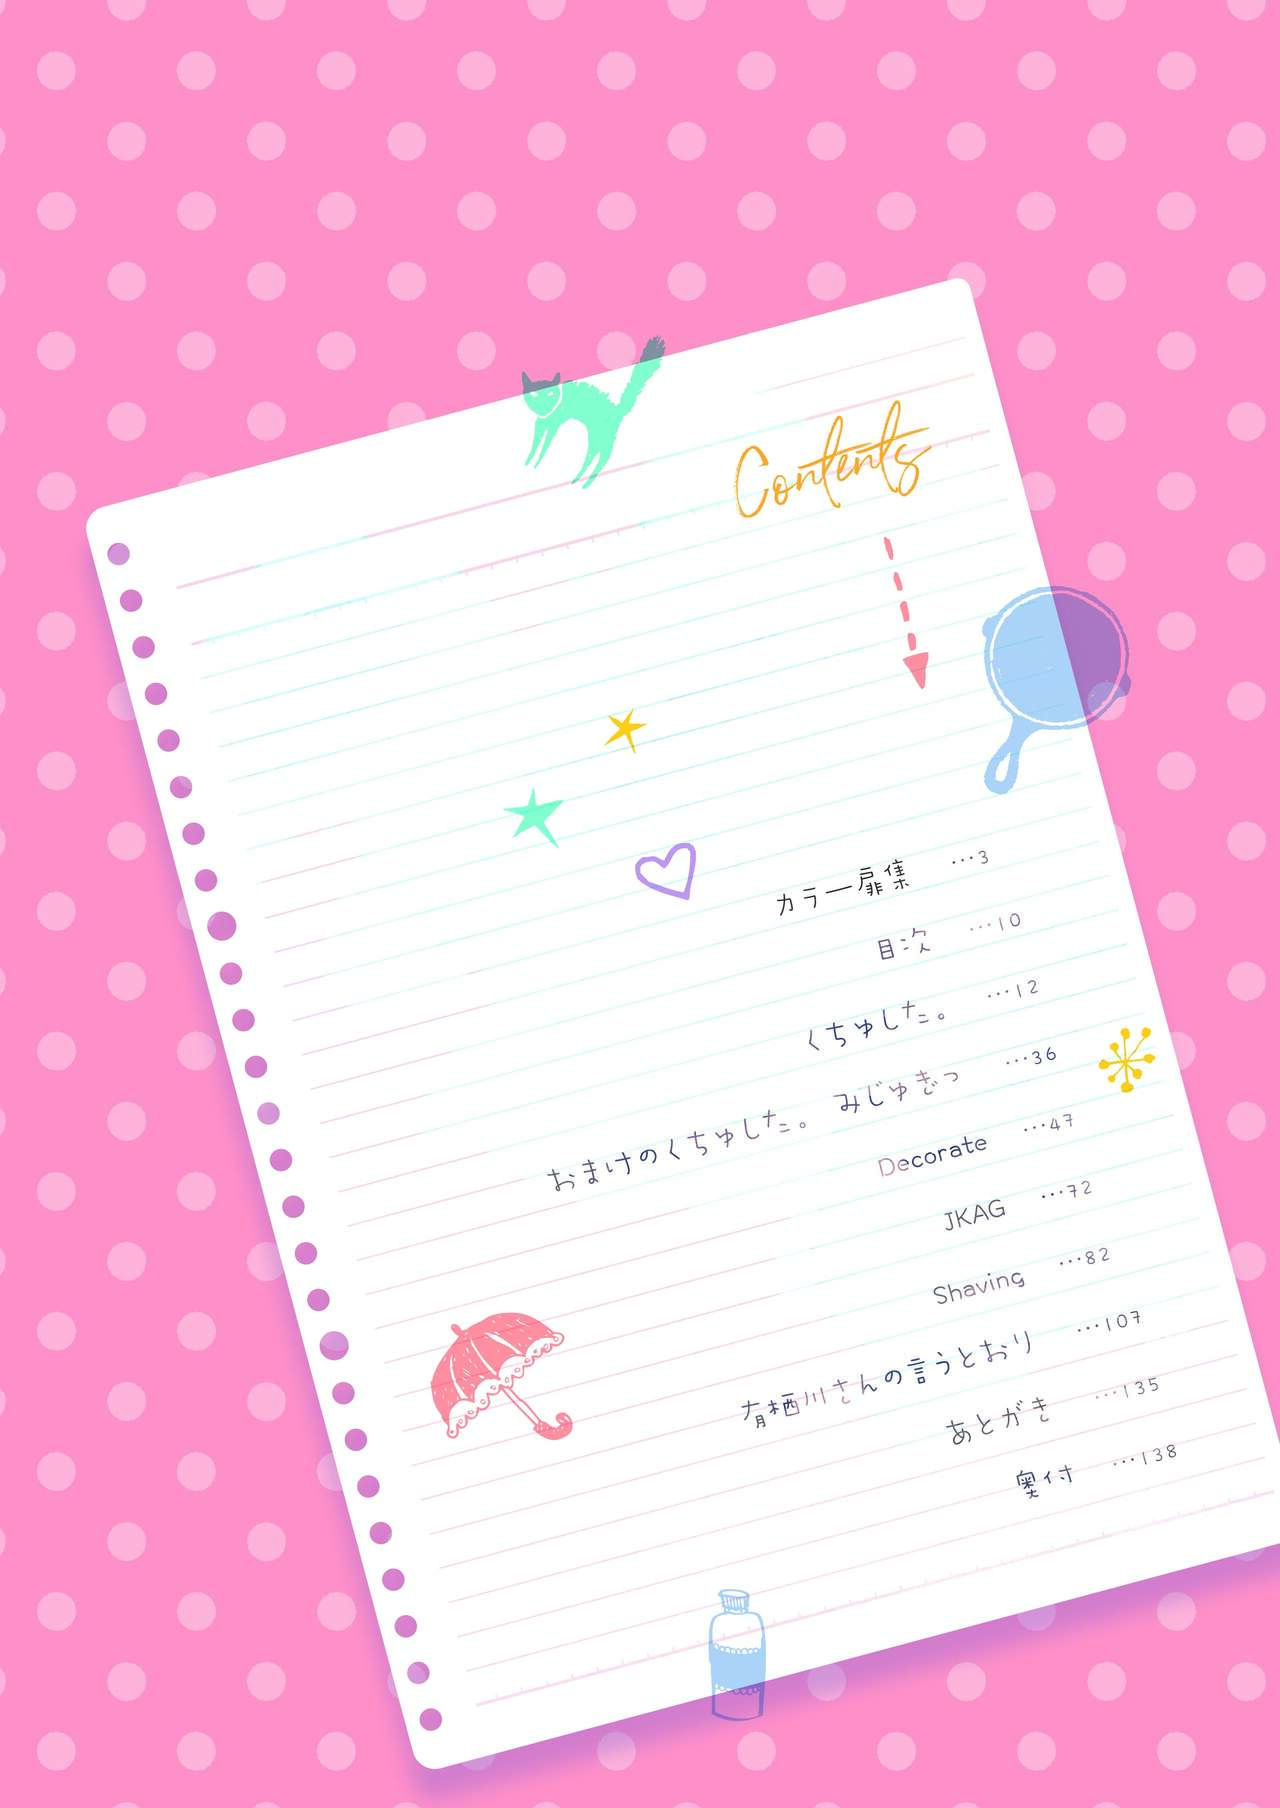 Contents
カラー扉集 …3
目次 …10
くちゅした。 …12
おまけのくちゅした。 みじゅぎっ …36
Decorate …47
JKAG …72
Shaving …82
有栖川さんの言うとおり …107
あとがき …135
奥付 …138